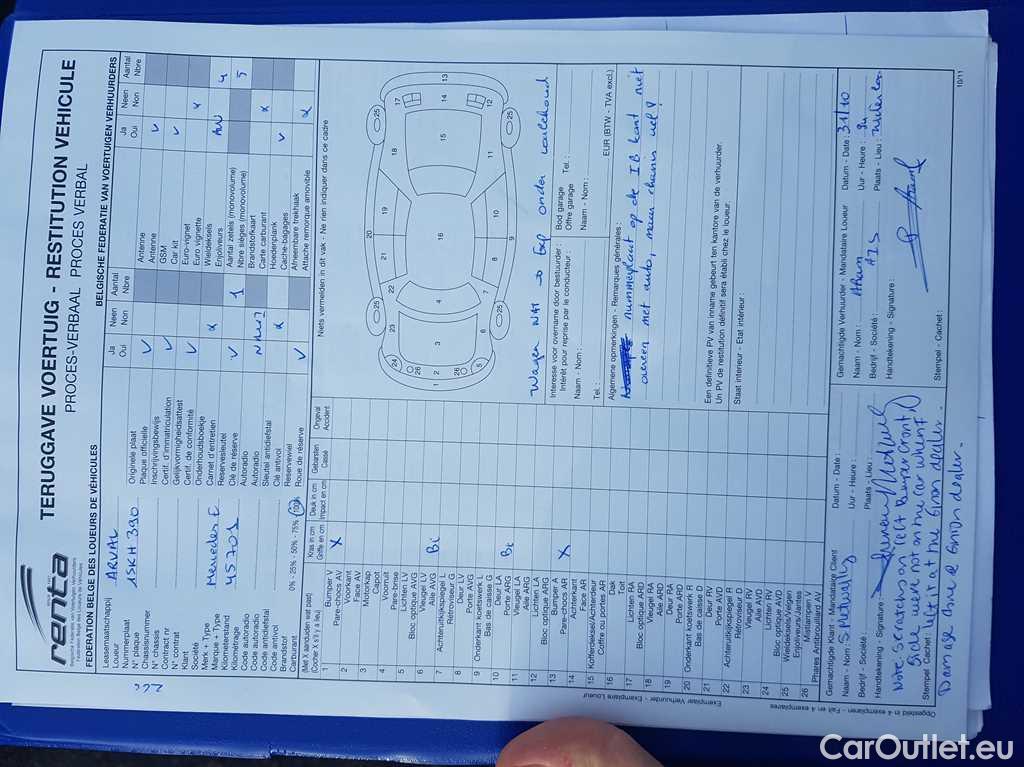 renta
Belgische Federatie van Voertuigen Verhuurders
Fédération Belge des Loueurs de Véhicules
TERUGGAVE VOERTUIG - RESTITUTION VEHICULE
PROCES-VERBAAL PROCES VERBAL
FEDERATION BELGE DES LOUEURS DE VÉHICULES
BELGISCHE FEDERATIE VAN VOERTUIGEN VERHUURDERS
Leasemaatschappij
Loueur ARVAL
Nummerplaat
N° plaque 1SKH 390
Chassisnummer
N° chassis
Contract nr
N° contrat
Klant
Société
Merk + Type
Marque + Type Mercedes E
Kilometerstand
Kilométrage 45701
Code autoradio
Code autoradio
Code antidiefstal
Code antivol
Brandstof
Carburant 0% - 25% - 50% - 75% - 100%
Ja Neen Aantal
Oui Non Nbre
Originele plaat
Plaque officielle V
Inschrijvingsbewijs
Certif. d'immatriculation V
Gelijkvormigheidsattest
Certif. de conformité V
Onderhoudsboekje
Carnet d'entretien x
Reservesleutel
Clé de réserve V 1
Autoradio
Autoradio
Sleutel antidiefstal
Clé antivol x
Reservewiel
Roue de réserve V
Ja Neen Aantal
Oui Non Nbre
Antenne
Antenne V
GSM
Car kit V
Euro-vignet
Euro vignette x
Wieldeksels
Enjoliveurs 4
Aantal zetels (monovolume)
Nbre sièges (monovolume) 5
Brandstofkaart
Carte carburant x
Hoedenplank
Cache-bagages V
Afneembare trekhaak
Attache remorque amovible x
(Met X aanduiden wat past)
(Cocher X s'il y a lieu)
Kras in cm
Griffe en cm
Deuk in cm
Impact en cm
Gebarsten
Cassé
Ongeval
Accident
1 Bumper V
Pare-chocs AV X
2 Voorkant
Face AV
3 Motorkap
Capot
4 Voorruit
Pare-brise
5 Lichten LV
Bloc optique AVG
6 Vleugel LV
Aile AVG Bi
7 Achteruitkijkspiegel L
Rétroviseur G
8 Deur LV
Porte AVG
9 Onderkant koetswerk L
Bas de caisse G
10 Deur LA
Porte ARG Bi
11 Vleugel LA
Aile ARG
12 Lichten LA
Bloc optique ARG
13 Bumper A
Pare-chocs AR X
14 Achterkant
Face AR
15 Kofferdeksel/Achterdeur
Coffre ou portes AR
16 Dak
Toit
17 Lichten RA
Bloc optique ARD
18 Vleugel RA
Aile ARD
19 Deur RA
Porte ARD
20 Onderkant koetswerk R
Bas de caisse D
21 Deur RV
Porte AVD
22 Achteruitkijkspiegel R
Rétroviseur D
23 Vleugel RV
Aile AVD
24 Lichten RV
Bloc optique AVD
25 Wieldeksels/Velgen
Enjoliveurs/Jantes
26 Mistlampen
Phares Antibrouillard AV
Niets vermelden in dit vak - Ne rien indiquer dans ce cadre
1 2 3 4 5 6 7 8 9 10 11 12 13 14 15 16 17 18 19 20 21 22 23 24 25 25 25 25 26 26
Interesse voor overname door bestuurder :
Intérêt pour reprise par le conducteur :
Naam - Nom :
Tel. :
Bod garage
Offre garage
Tel. :
Naam - Nom :
EUR (BTW - TVA excl.)
Algemene opmerkingen - Remarques générales :
nummerplaat op de IB kant niet
overeen met auto, maar chassis wel!
Een definitieve PV van inname gebeurt ten kantore van de verhuurder.
Un PV de restitution définitif sera établi chez le loueur.
Staat interieur - Etat intérieur :
Gemachtigde Klant - Mandataire Client
Naam - Nom :
Bedrijf - Société :
Handtekening - Signature :
Datum - Date :
Uur - Heure :
Plaats - Lieu :
Note: scratches on left Bumper front
side were not on the car when I
Stempel - Cachet : left it at the Garage dealer.
Damage done @ dealer.
Gemachtigde Verhuurder - Mandataire Loueur
Naam - Nom : Aram
Bedrijf - Société : AIS
Handtekening - Signature :
Datum - Date : 31/10
Uur - Heure :
Plaats - Lieu :
Stempel - Cachet :
Opgesteld in 4 exemplaren - Fait en 4 exemplaires
Exemplaar Verhuurder - Exemplaire Loueur
10/11
CarOutlet.eu